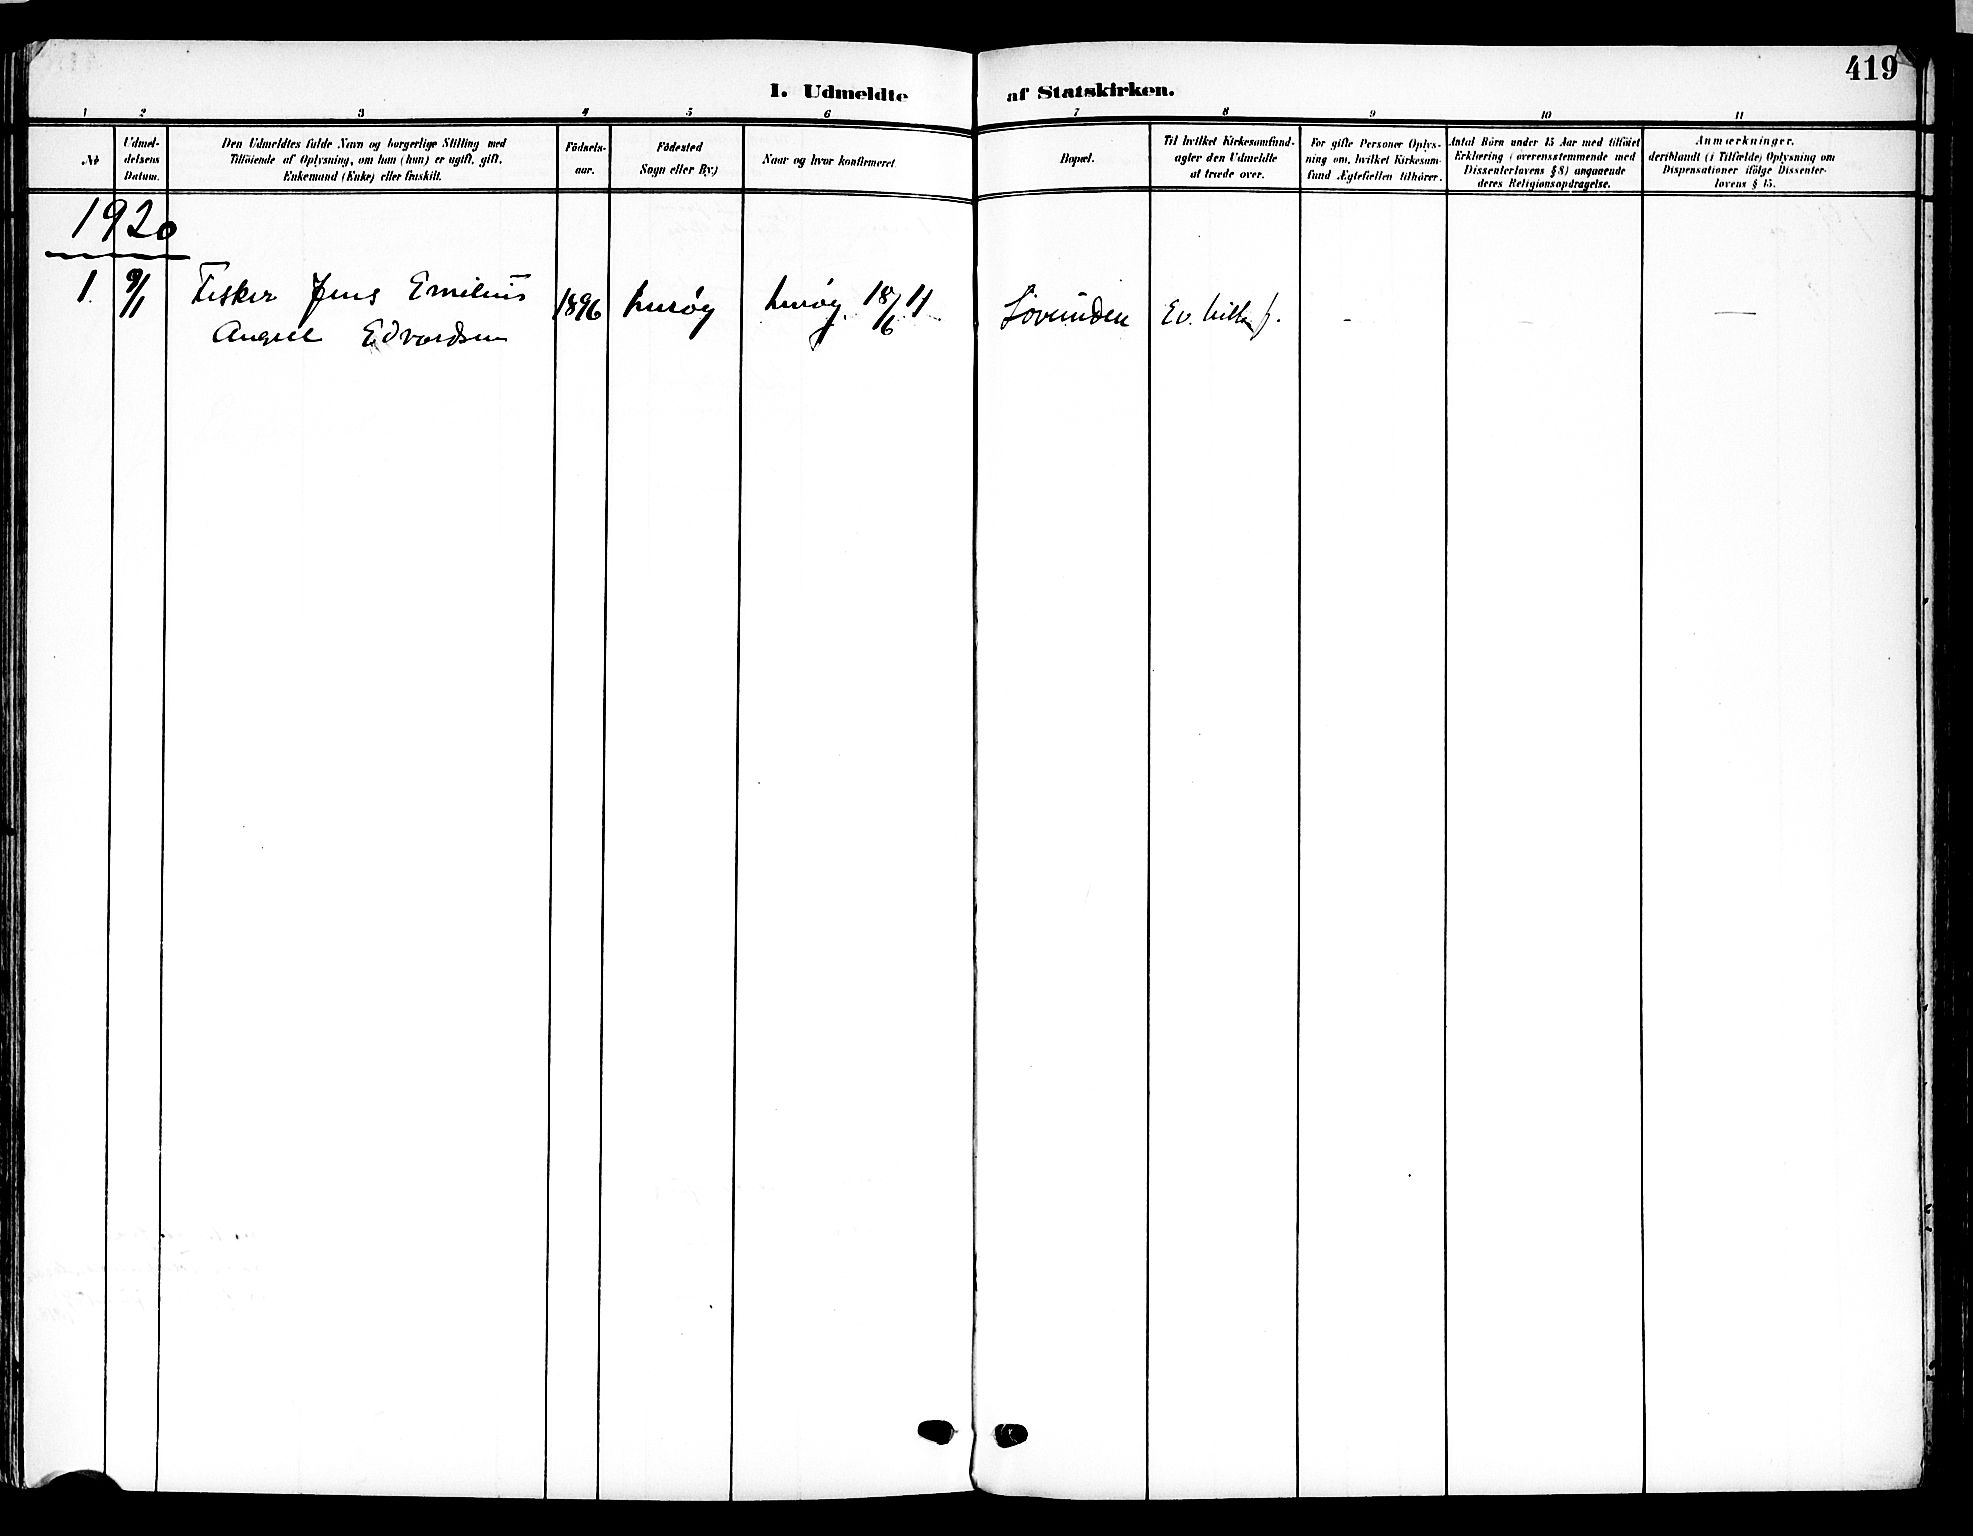 419
I. Udmeldte af Statskirken.
1 2 3 4 5 6 7 8 9 10 11
No
Udmel-
delsens
Datum.
Den Udmeldtes fulde Navn og borgerlige Stilling med
Tilföiende af Oplysning, om han (hun) er ugift, gift,
Enkemand (Enke) eller fraskilt.
Födsels-
aar.
Födested
Sogn eller By.)
Naar og hvor konfirmeret
Bopæl.
Til hvilket Kirkesamfund
agter den Udmeldte
at træde over.
For gifte Personer Oplys-
ning om, hvilket Kirkesam-
fund Ægtefællen tilhörer.
Antal Börn under 15 Aar med tilföiet
Erklæring (overensstemmende med
Dissenterlovens § 8) angaaende
deres Religionsopdragelse.
Anmærkninger,
deriblandt (i Tilfælde) Oplysning om
Dispensationer ifölge Dissenter-
lovens § 15.
1920
1. 9/1 Fisker Jens Emilius
Angell Edvardsen
1896 Lurøy Lurøy 18/6 11 Lovunden Ev. luth. f. - - —